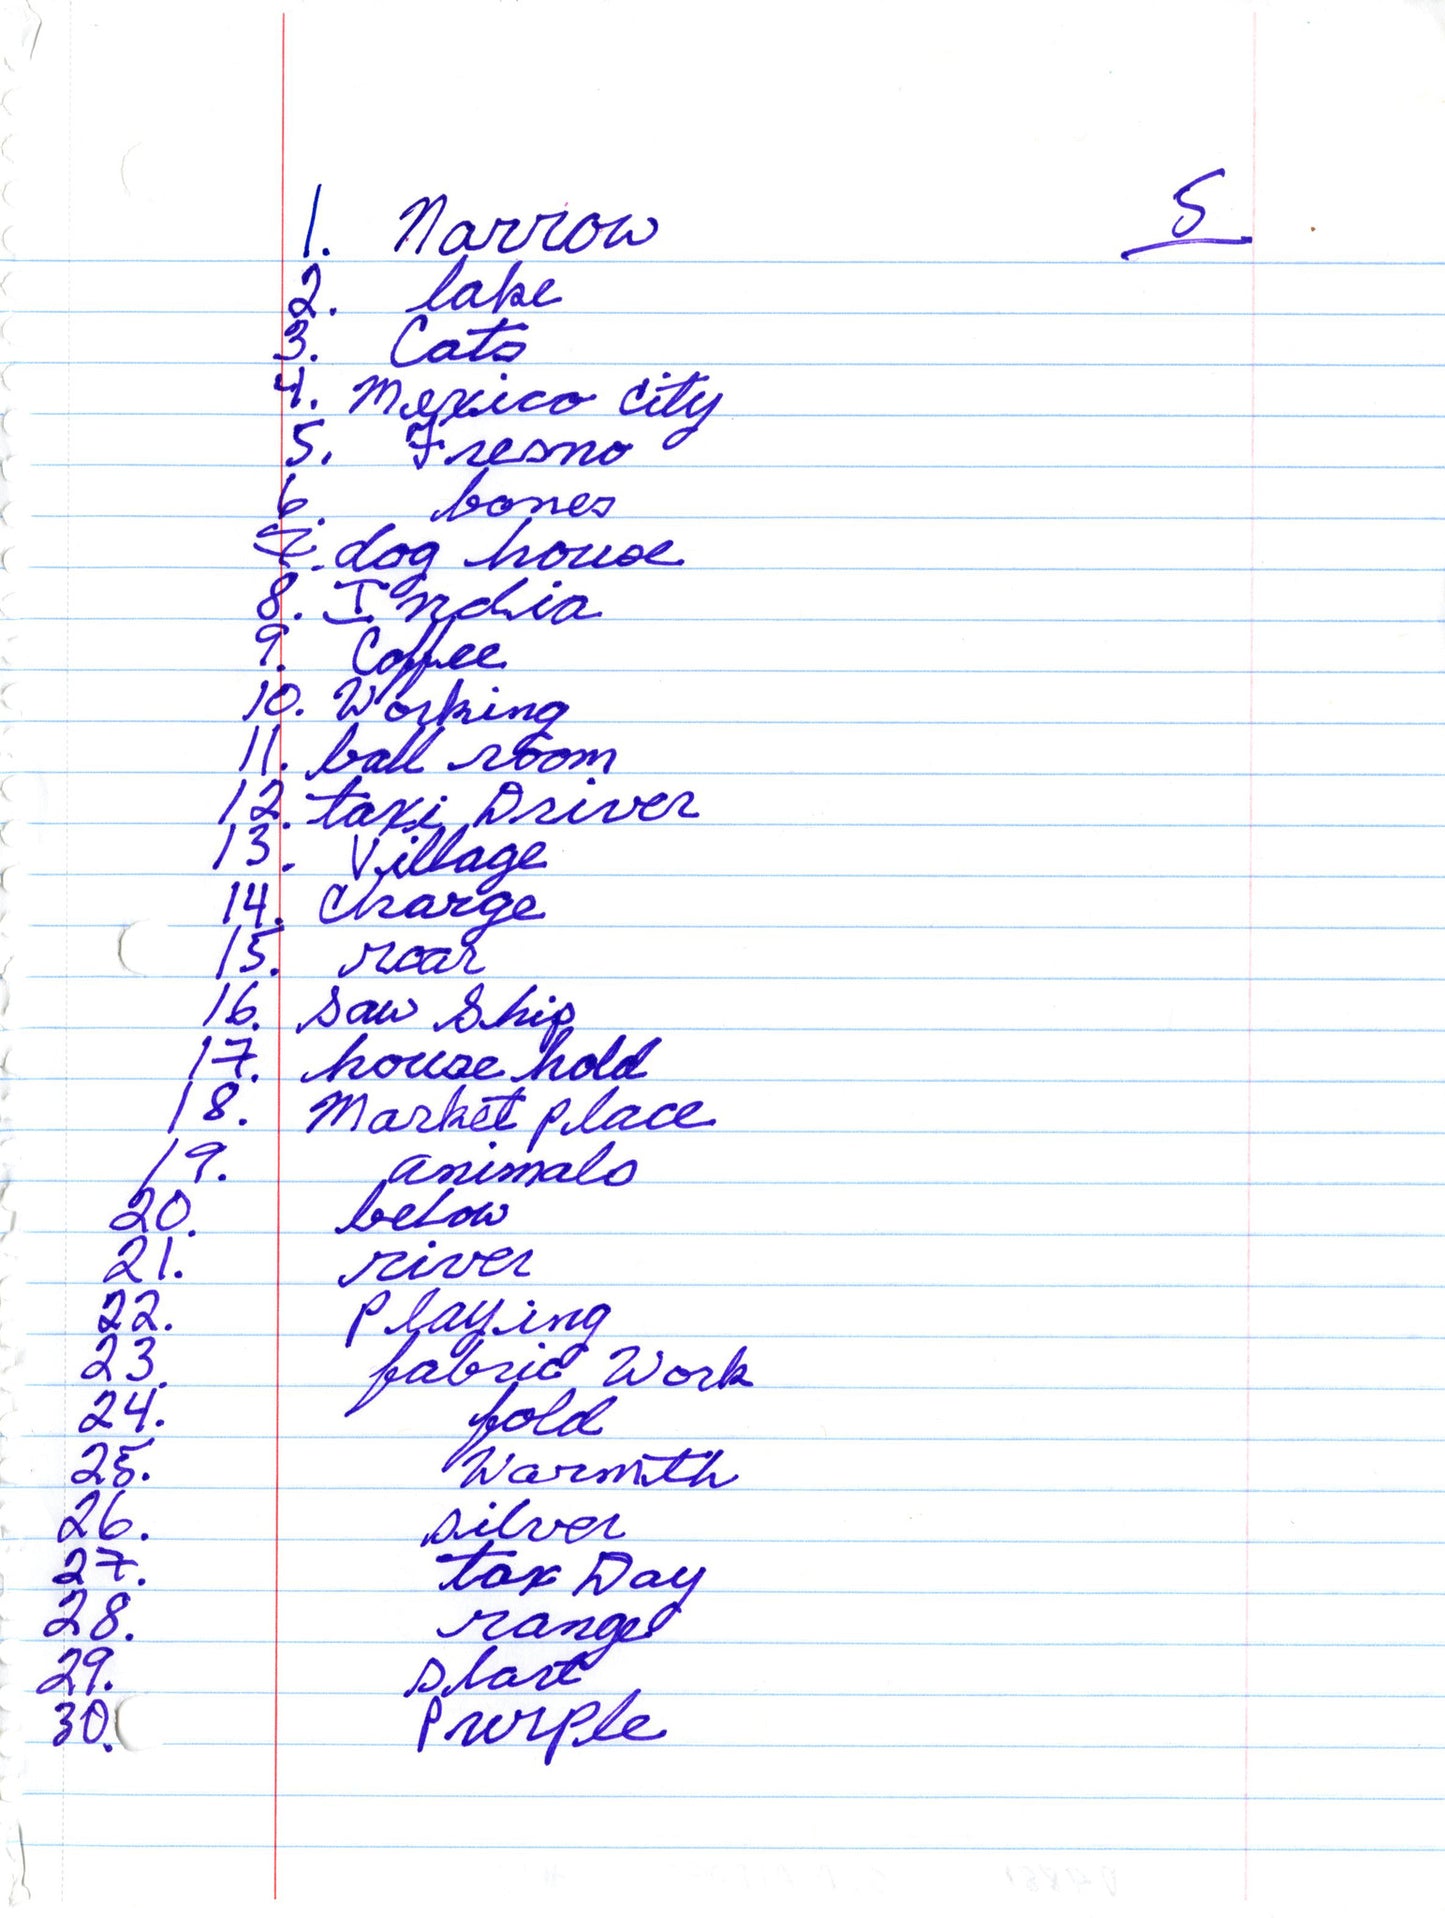 5
1. Narrow
2. lake
3. Cats
4. Mexico City
5. Fresno
6. bones
7. dog house
8. India
9. Coffee
10. Working
11. ball room
12. taxi Driver
13. Village
14. Charge
15. roar
16. saw Ship
17. house hold
18. Market place
19. animals
20. below
21. river
22. Playing
23. fabric Work
24. fold
25. Warmth
26. silver
27. tax Day
28. range
29. start
30. Purple